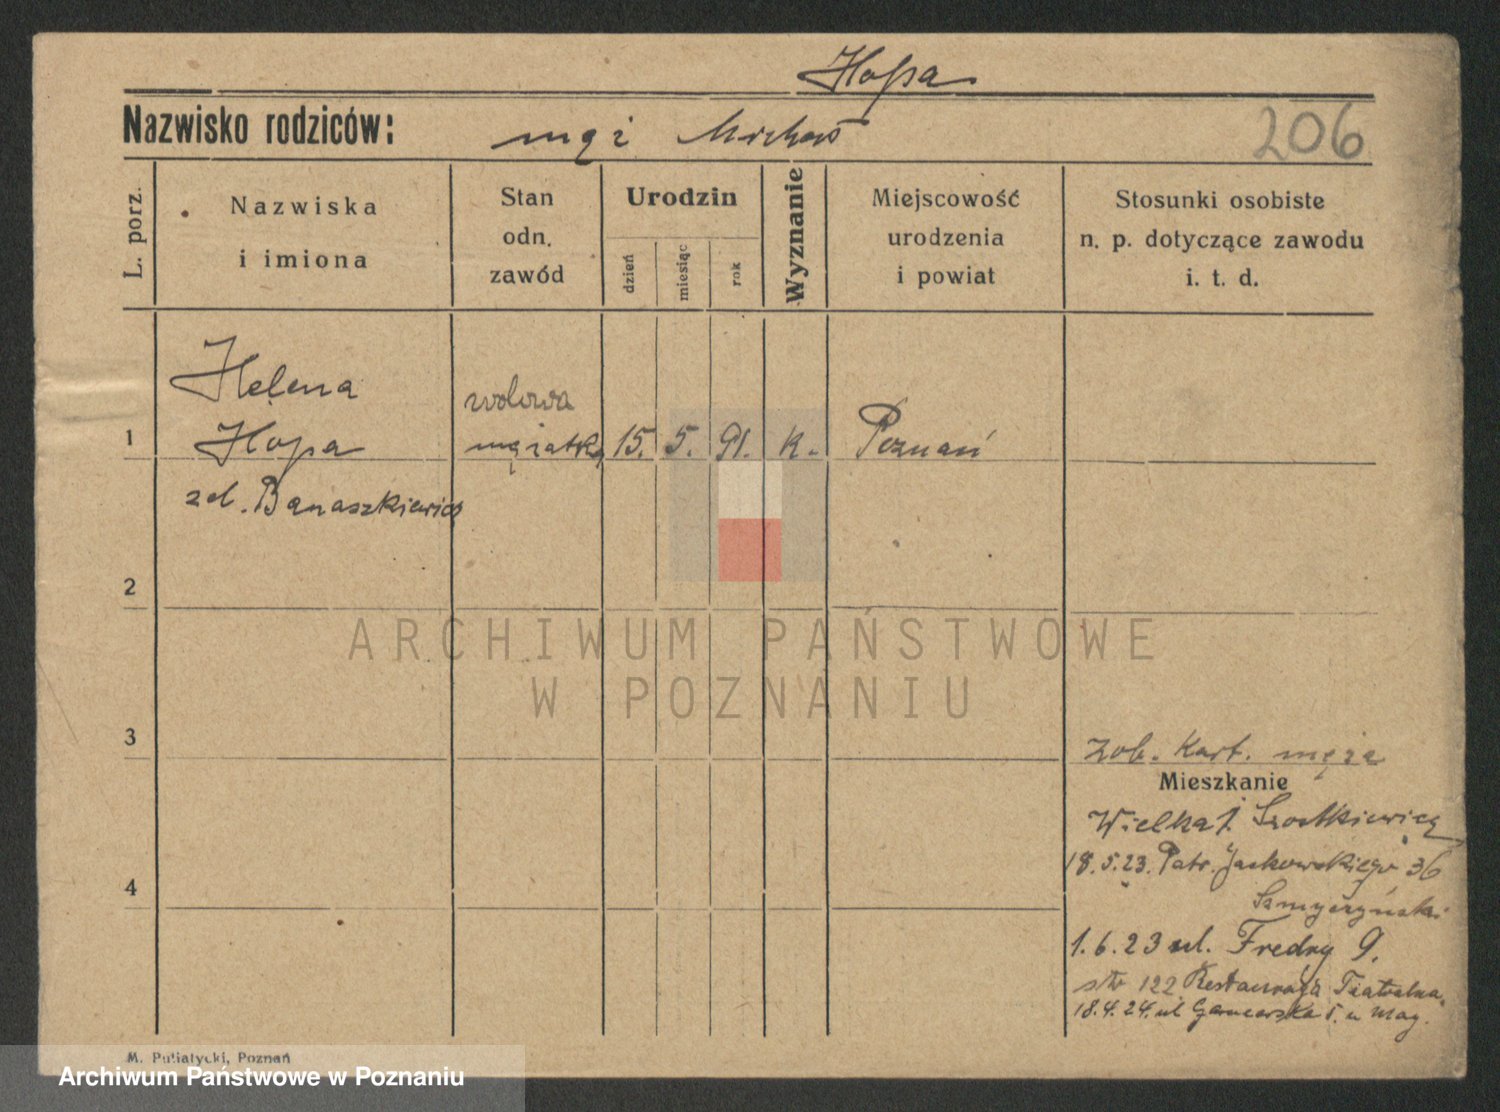 Hopa
Nazwisko rodziców: mąż Michał
206
L. porz.
Nazwiska i imiona
Stan odn. zawód
Urodzin
dzień
miesiąc
rok
Wyznanie
Miejscowość urodzenia i powiat
Stosunki osobiste n. p. dotyczące zawodu i. t. d.
Helena
wdowa
1 Hopa mężatka 15. 5. 91. k. Poznań
zd. Banaszkiewicz
2
ARCHIWUM PAŃSTWOWE
W POZNANIU
3
zob. Kart. męża
Mieszkanie
Wielka 1. Szostkiewicz
18.5.23. Patr. Jackowskiego 36
4
1.6.23 ul. Fredry 9.
str 122 Restauracja Teatralna
18.4.24. ul Garncarska 5. u May.
M. Putiatycki, Poznań
Archiwum Państwowe w Poznaniu